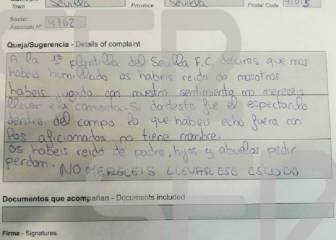 Town Sevilla Province Sevilla Postal Code 41015
Socio:
Associate Nº 4762
Queja/Sugerencia - Details of complaint
A la 1ª plantilla del Sevilla F.C. deciros que nos
habeis humillado os habeis reido de nosotros
habeis jugado con nuestro sentimiento no mereceis
llevar esa camiseta. Si dantesto fue el espectaculo
dentro del campo lo que habeis echo fuera con
los aficionados no tiene nombre.
os habeis reido de padre, hijos y abuelos pedir
perdon. NO MERECEIS LLEVAR ESE ESCUDO
Documentos que acompañan - Documents included
Firma - Signatures